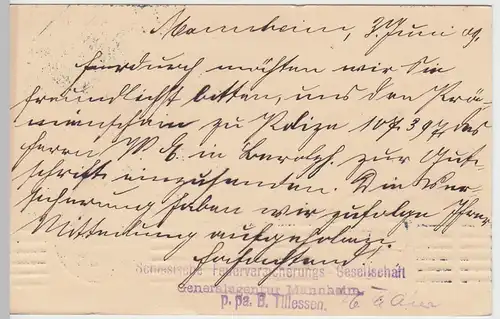 Mannheim, 3. Juni 09.
Hierdurch möchten wir Sie
freundlichst bitten, uns den Prä-
mienschein zu Polize 107397 des
Herrn W. E. in zur Gut-
schrift einzusenden. Die Ver-
sicherung haben wir zufolge Ihrer
Mitteilung aufgehoben.
Hochachtend
Schlesische Feuerversicherungs-Gesellschaft
Generalagentur Mannheim
p. pa. B. Tillessen.